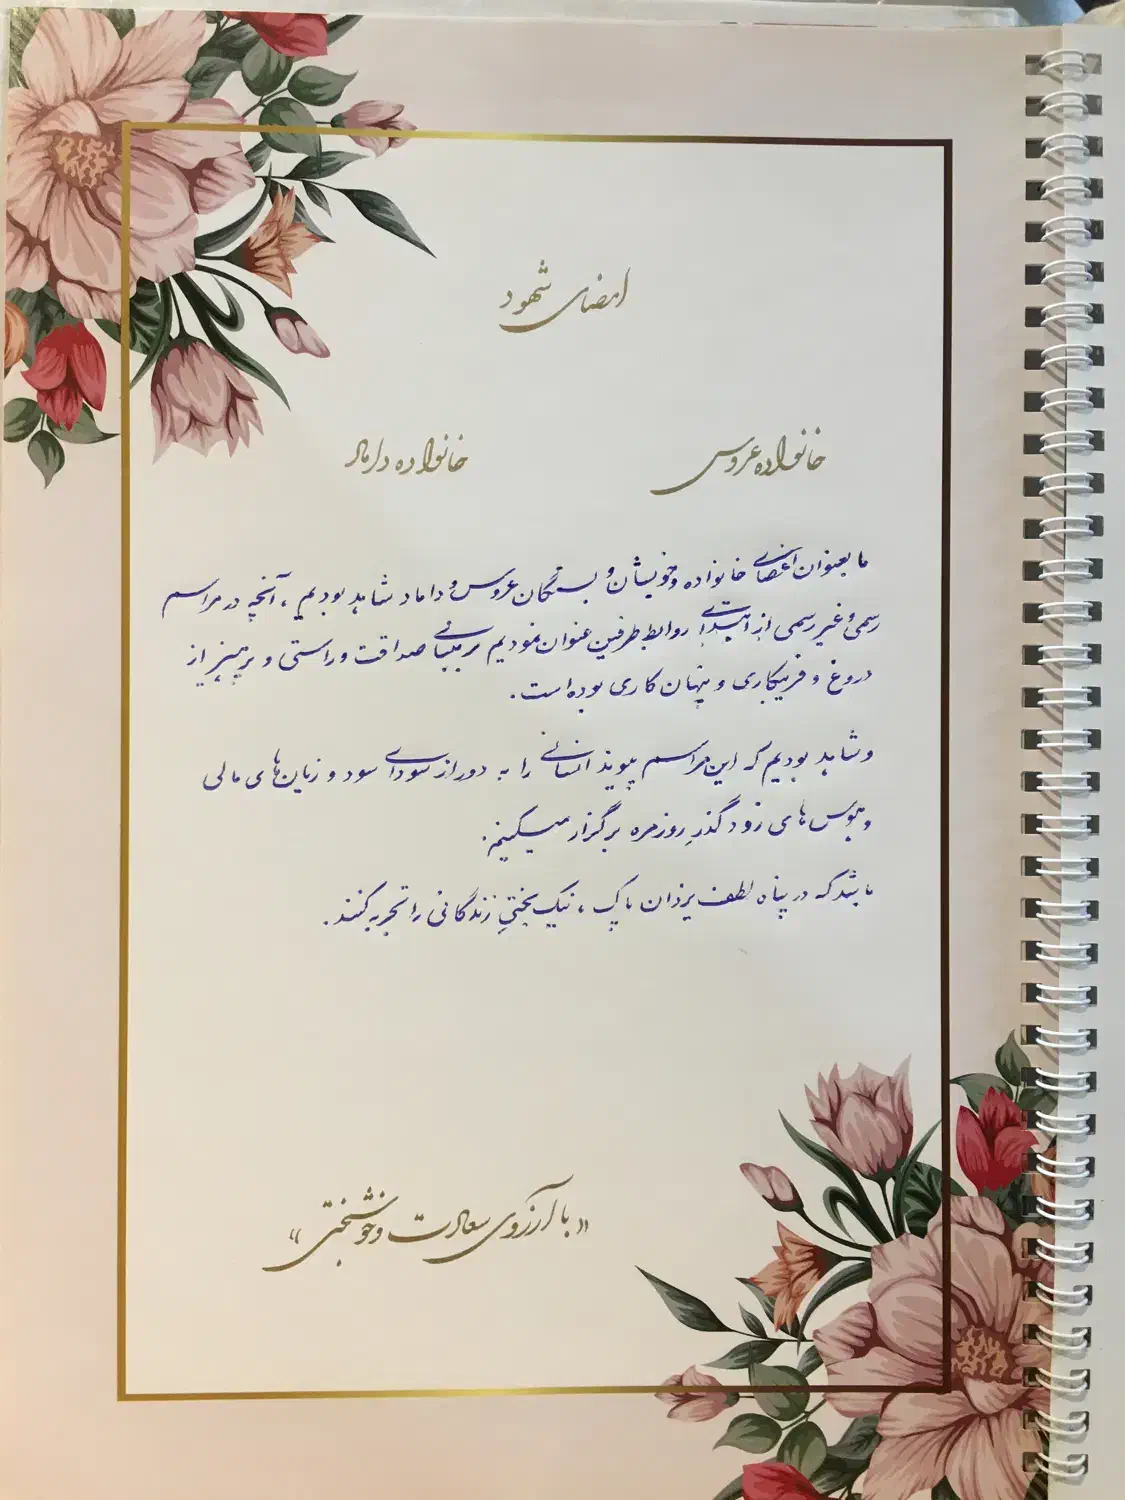 امضای شهود
خانواده عروس
خانواده داماد
ما بعنوان اعضای خانواده و خویشان و بستگان عروس و داماد شاهد بودیم، آنچه در مراسم
رسمی و غیر رسمی از ابتدای روابط طرفین عنوان نمودیم بر مبنای صداقت و راستی و پرهیز از
دروغ و فریبکاری و پنهان کاری بوده است.
و شاهد بودیم که این مراسم پیوند انسانی را به دور از سودای سود و زیان‌های مالی
و هوس‌های زود گذرِ روزمره برگزار میکنیم.
باشد که در پناه لطف یزدان پاک، نیک بختیِ زندگانی را تجربه کنند.
«با آرزوی سعادت و خوشبختی»